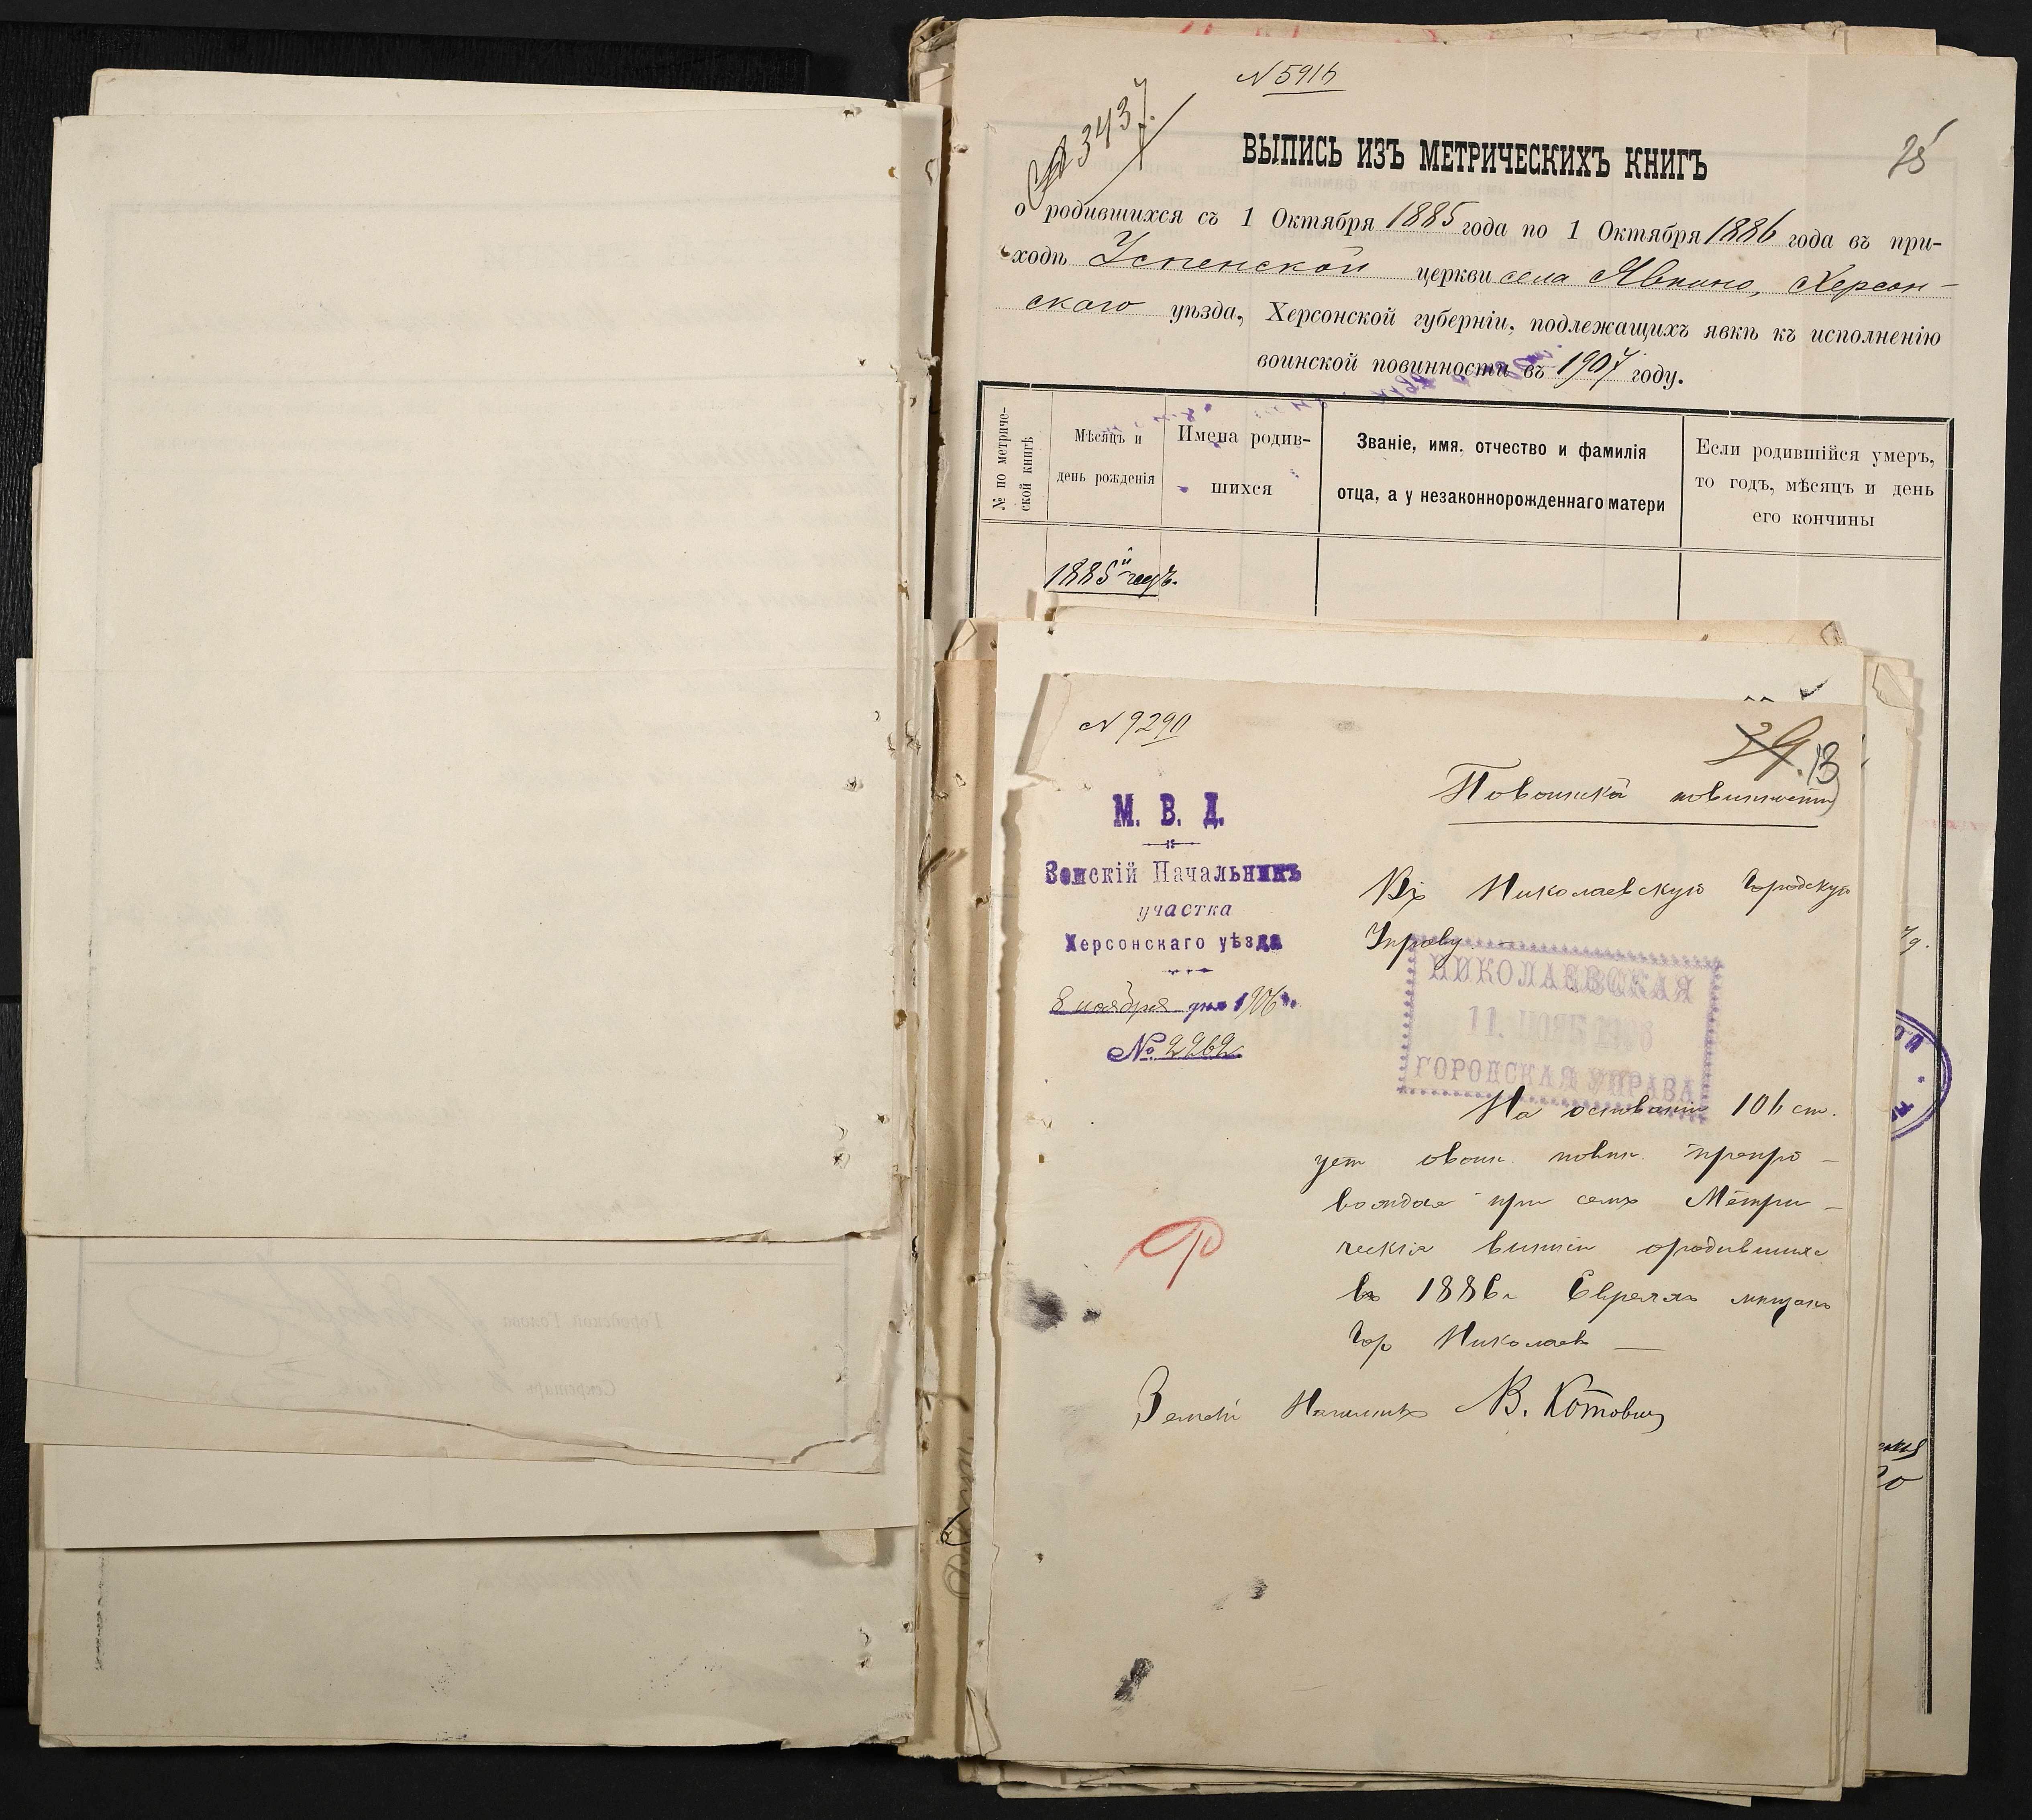 № 5916
№ 3437.
25
ВЫПИСЬ ИЗЪ МЕТРИЧЕСКИХЪ КНИГЪ
о родившихся съ 1 Октября 1885 года по 1 Октября 1886 года въ при-
ходѣ Успенской церкви села Явкино, Херсон-
скаго уѣзда, Херсонской губерніи, подлежащихъ явкѣ къ исполненію
воинской повинности въ 1907 году.
№ по метриче-
ской книгѣ
Мѣсяцъ и
день рожденія
Имена родив-
шихся
Званіе, имя, отчество и фамилія
отца, а у незаконнорожденнаго матери
Если родившійся умеръ,
то годъ, мѣсяцъ и день
его кончины
1885й годъ.
№ 9290
29. 13
По воинской повинности
М. В. Д.
Земскій Начальникъ
участка
Херсонскаго уѣзда
8 ноября дня 1906 г.
№ 2262
Въ Николаевскую Городскую
Управу
НИКОЛАЕВСКАЯ
11. НОЯБ 1906
ГОРОДСКАЯ УПРАВА
На основании 106 ст.
уст о воин. повин. препро-
вождаю при семъ Метри-
ческія выписи о родившихся
въ 1886 г Евреяхъ мещанъ
Гор Николаев
Земскій Начальникъ В. Котович
Городской Голова
Секретарь